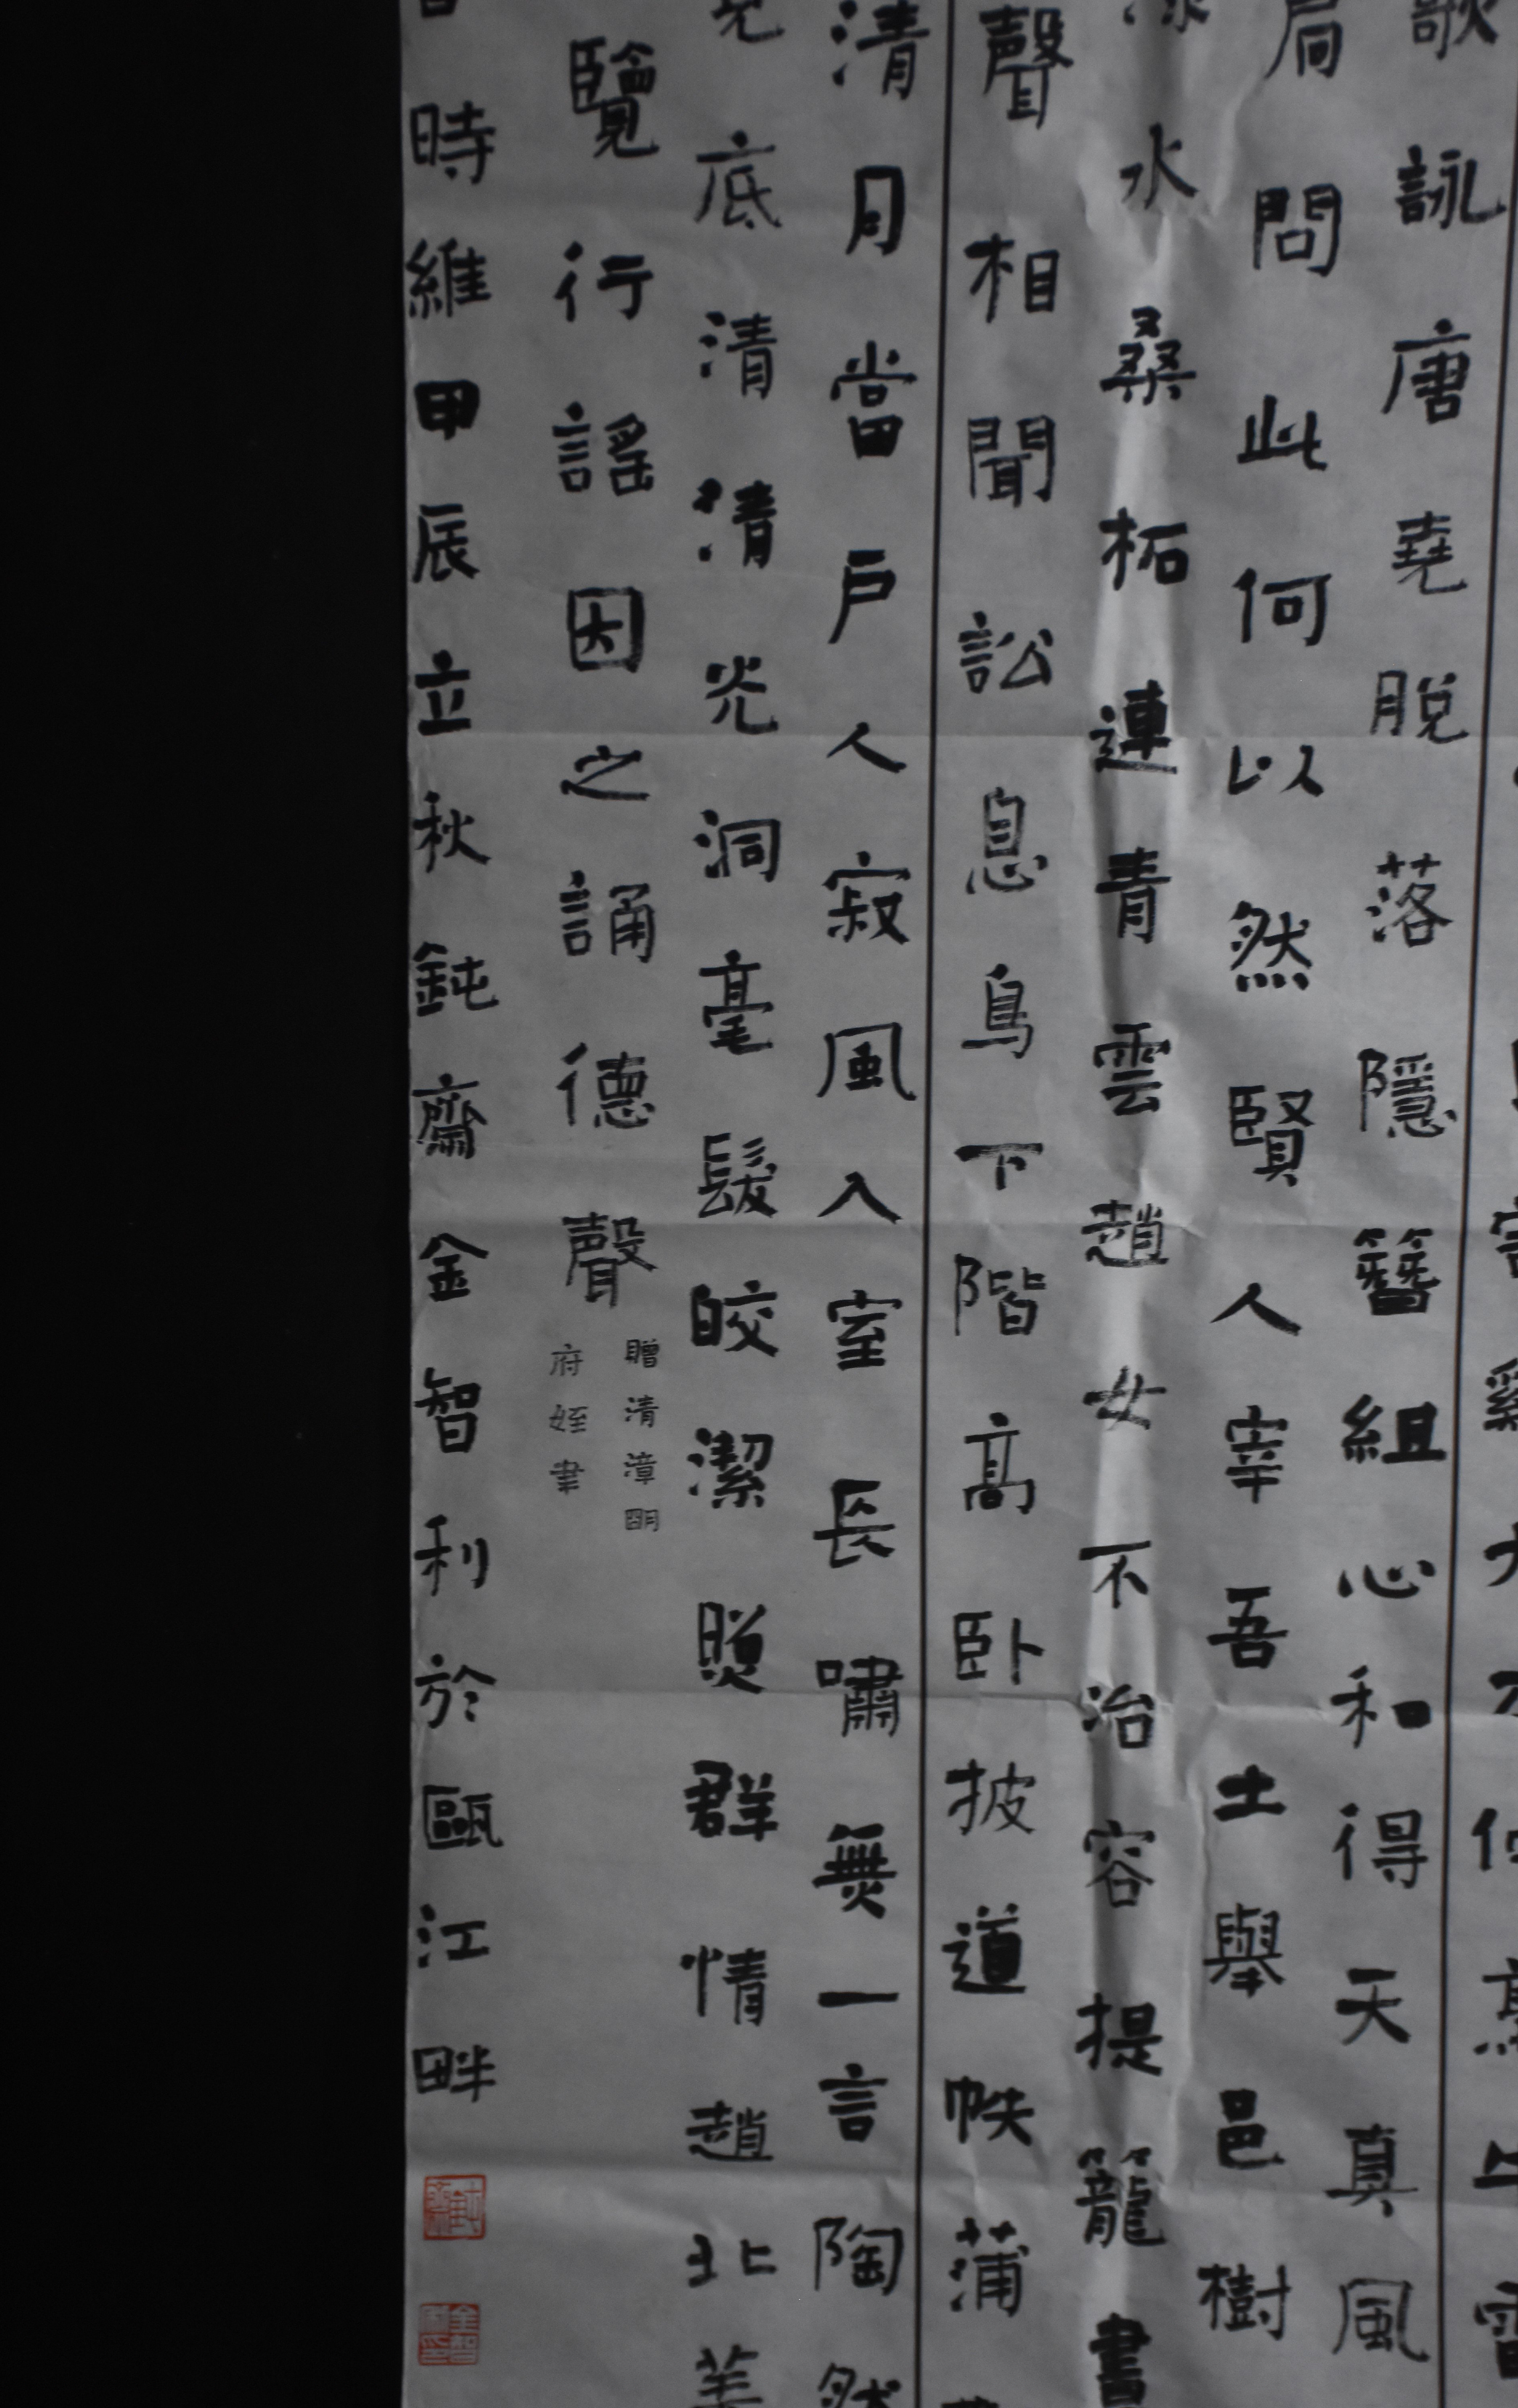 歌詠唐堯脱落隱簪組心和得天真風
局問此何以然賢人宰吾土舉邑樹
水桑柘連青雲趙女不冶容提籠晝
聲相聞訟息鳥下階高卧披道帙蒲
清月當户人寂風入室長嘯無一言陶然
見底清清光洞毫髮皎潔照群情趙北美
覽行謡因之誦德聲
贈清漳明
府姪聿
時維甲辰立秋鈍齋金智利於甌江畔